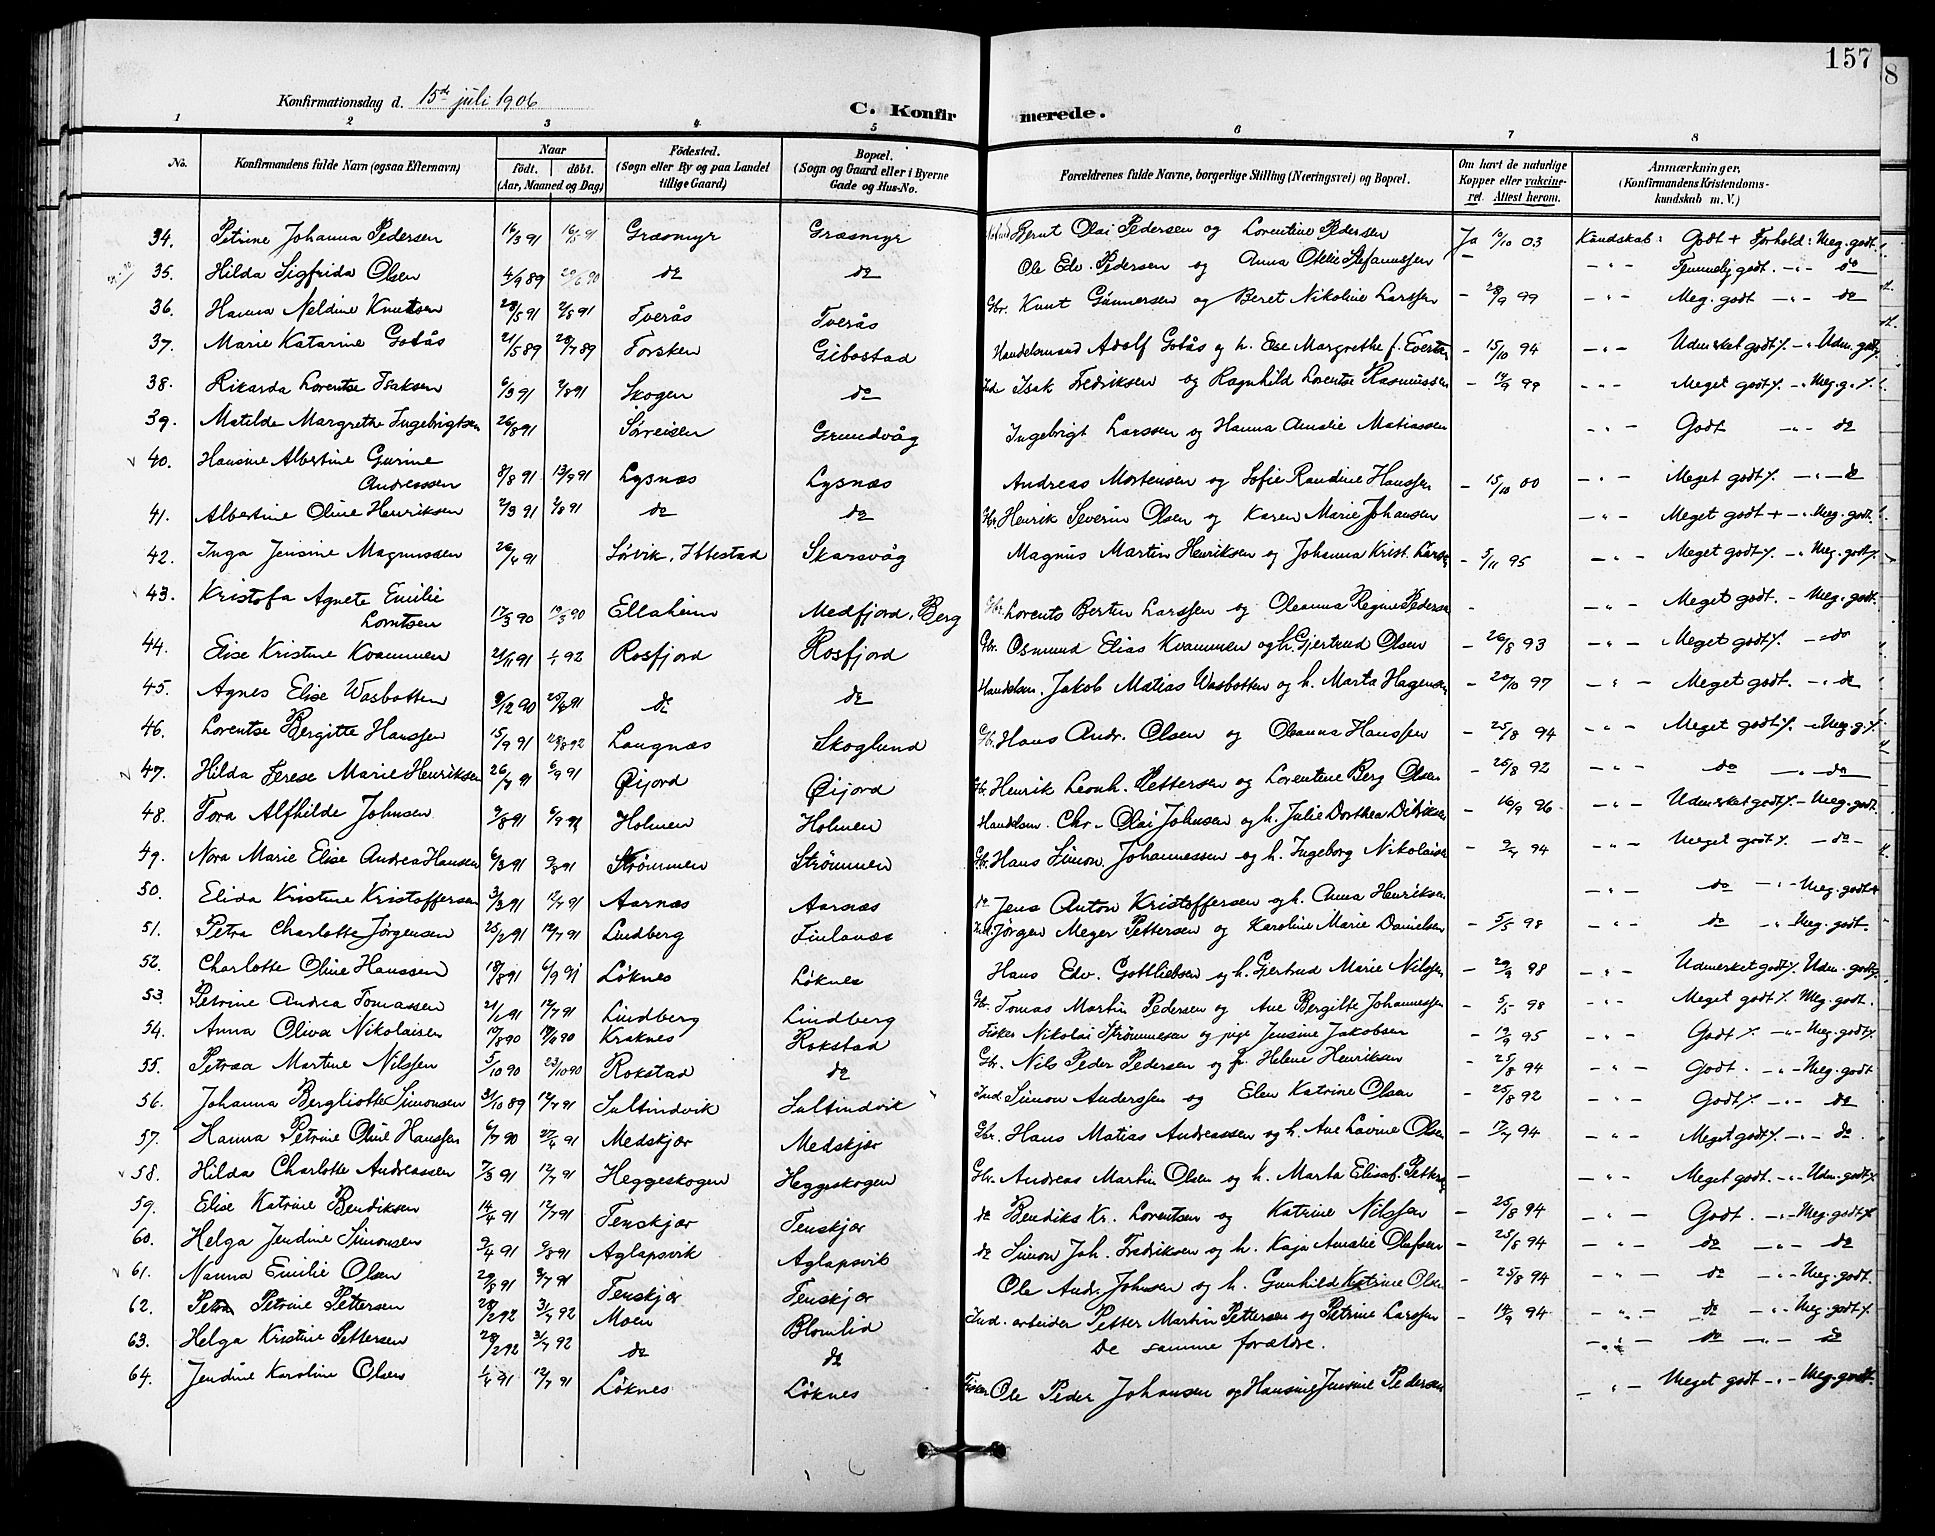 157
8
Konfirmationsdag d. 15de juli 1906
C. Konfirmerede.
1 2 3 4 5 6 7 8
No. Konfirmandens fulde Navn (ogsaa Efternavn) Naar født. døbt. (Aar, Maaned og Dag) Fødested. (Sogn eller By og paa Landet tillige Gaard) Bopæl. (Sogn og Gaard eller i Byerne Gade og Hus-No. Forældrenes fulde Navne, borgerlige Stilling (Næringsvei) og Bopæl. Om havt de naturlige Kopper eller vakcineret. Attest herom. Anmærkninger, (Konfirmandens Kristendomskundskab m. V.)
34. Petrine Johanna Pedersen 16/3 91 16/5 91 Græsmyr Græsmyr Bernt Olai Pedersen og Lorentine Pedersen Ja 10/10 03 Kundskab: Godt + Forhold: Meg. godt
35. Hilda Sigfrida Olsen 4/9 89 29/6 90 do do Ole Edv. Pedersen og Anna Otelie Stefanussen - Temmelig godt. -"- do
36. Hanna Neldine Knutsen 28/5 91 2/8 91 Tverås Tverås Gbr. Knut Gunnersen og Beret Nikoline Larssen - 28/9 99 -"- Meg. godt -"- do
37. Marie Katarine Gotås 21/5 89 28/7 89 Torsken Gibostad Handelsmand Adolf Gotås og h. Else Margrethe f. Evertsen - 15/10 94 -"- Udmerket godt% -"- Udm. godt
38. Rikarda Lorentse Isaksen 6/3 91 2/8 91 Skogen do Ind Isak Fredriksen og Ragnhild Lorentse Rasmussen - 14/9 99 -"- Meget godt% -"- Meg. g. %
39. Matilde Margrethe Ingebrigtsen 26/8 91 Sørreisen Grundvåg Ingebrigt Larssen og Hanna Amalie Matiassen -"- Godt -"- do
40. Hansine Albertine Gurine Andreassen 8/8 91 13/9 91 Lysnæs Lysnæs Andreas Mortensen og Sofie Randine Hanssen - 15/10 00 -"- Meget godt% -"- do
41. Albertine Oline Henriksen 2/3 91 2/8 91 do do Gbr Henrik Severin Olsen og Karen Marie Johansen -"- Meget godt + -"- Meg. godt.
42. Inga Jensine Magnussen 26/4 91 Sørvik, Ibbestad Skarsvåg Magnus Martin Henriksen og Johanna Krist. Larss - 5/11 95 -"- Meget godt% -"- Meg. godt%
43. Kristofa Agnete Emilie Lorntsen 17/3 90 Ellaheim Medfjord, Berg Gbr. Lorents Bertin Larssen og Oleanna Regine Pedersen - -"- Meget godt. - Meg. godt.
44. Elise Kristine Kvammen 21/11 91 1/1 92 Rosfjord Rosfjord Gbr. Osmund Elias Kvammen og h. Gjertrud Olsen - 26/8 93 -"- Meget godt% -"- do
45. Agnes Elise Wasbotten 9/12 90 25/4 91 do do Handelsm. Jakob Matias Wasbotten og h. Marta Hagensen - 20/10 97 -"- Meget godt. -"- do
46. Lorentse Bergitte Hanssen 15/9 91 28/8 92 Langnæs Skoglund Gbr. Hans Andr. Olsen og Oleanna Hanssen - 25/8 94 -"- Meget godt% -"- Meg. g. %
47. Hilda Terese Marie Henriksen 26/7 91 6/9 91 Øijord Øijord Gbr. Henrik Leonh. Pettersen og Lorentine Berg Olsen - 25/8 92 -"- do -"- do
48. Tora Alfhilde Johnsen 9/8 91 6/9 91 Holmen Holmen Handelsm. Chr. Olai Johnsen og h. Julie Dorthea Didriksen - 16/9 96 -"- Udmerket godt% - Meg. godt.
49. Nora Marie Elise Andrea Hansen 6/3 91 2/8 91 Strømmen Strømmen Gbr. Hans Simon Johannessen og h. Ingeborg Nikolaisen - 2/7 94 -"- Meget godt% -do-
50. Elida Kristine Kristoffersen 3/3 91 12/7 91 Aarnæs Aarnæs do Jens Anton Kristoffersen og h. Anna Henriksen -"- do -"- Meg. godt+
51. Petra Charlotte Jørgensen 25/2 91 12/7 91 Lindberg Finlanæs Ind. Jørgen Meyer Pettersen og Karoline Marie Danielsen - 5/5 98 -"- do -"- Meg. godt.
52. Charlotte Oline Hanssen 18/8 91 6/9 91 Løknes Løknes Hans Edv. Gottliebsen og h. Gjertrud Marie Nilssen - 29/9 98 -"- Udmerket godt% Udm. godt
53. Petrine Andrea Tomassen 21/2 91 12/7 91 Lindberg Lindberg Gbr. Tomas Martin Pedersen og Ane Bergitte Johannessen - 5/5 98 -"- Meget godt% Meg. godt.
54. Anna Oliva Nikolaisen 19/8 90 Kraknes Rokstad Fisker Nikolai Strømmesen og pige Jensine Jakobsen - 19/9 95 -"- Godt% -"- Meg. godt%
55. Petraa Martine Nilssen 5/10 90 23/10 90 Rokstad do Gbr. Nils Peder Pedersen og h. Helene Henriksen - 25/8 94 -"- Godt. -"- Meg. godt
56. Johanna Bergliotte Simonsen 31/10 89 12/7 91 Sultindvik Sultindvik Ind Simon Anderssen og Elen Katrine Olsen - 25/8 92 -"- Godt% -"- do
57. Hanna Petrine Oline Hanssen 6/7 90 27/6 91 Medskjær Medskjær Gbr. Hans Matias Andreassen og h. Ane Lovine Olsen - 17/7 94 -"- Meget godt% -"- do
58. Hilda Charlotte Andreassen 7/3 91 12/7 91 Heggeskogen Heggeskogen Gbr. Andreas Martin Olsen og h. Marta Elisaf. Petters - -"- Meget godt. -"- Udm. godt%
59. Elise Katrine Bendiksen 14/4 91 12/7 91 Tenskjær Tenskjær do Bendiks Kr. Lorentsen og Katrine Nilssen - 25/8 94 -"- Godt. -"- Meg. godt%
60. Helga Jendine Simonsen 9/4 91 9/8 91 Aglapsvik Aglapsvik do Simon Joh. Fredriksen og h. Kaja Amalie Olufsen - 25/8 94 -"- do -"- do
61. Nanna Emilie Olsen 29/8 91 Tenskjær Tenskjær Ole Andr. Johnsen og h. Gunhild Katrine Olsen - 25/8 94 -"- do -"- Meg. godt.
62. Petrine Pettersen 28/2 92 3/7 92 Moen Blomlid Ind. arbeider Petter Martin Pettersen og Petrine Larssen - 14/9 94 -"- do -"- Meg. godt%
63. Helga Kristine Pettersen 28/2 92 3/7 92 do do De samme forældre. -"- do -"- do
64. Jendine Karoline Olsen 1/4 91 12/7 91 Løknes Løknes Fisker Ole Peder Johansen og Hansine Jensine Pedersen -"- Meget godt -"- Meg. godt.